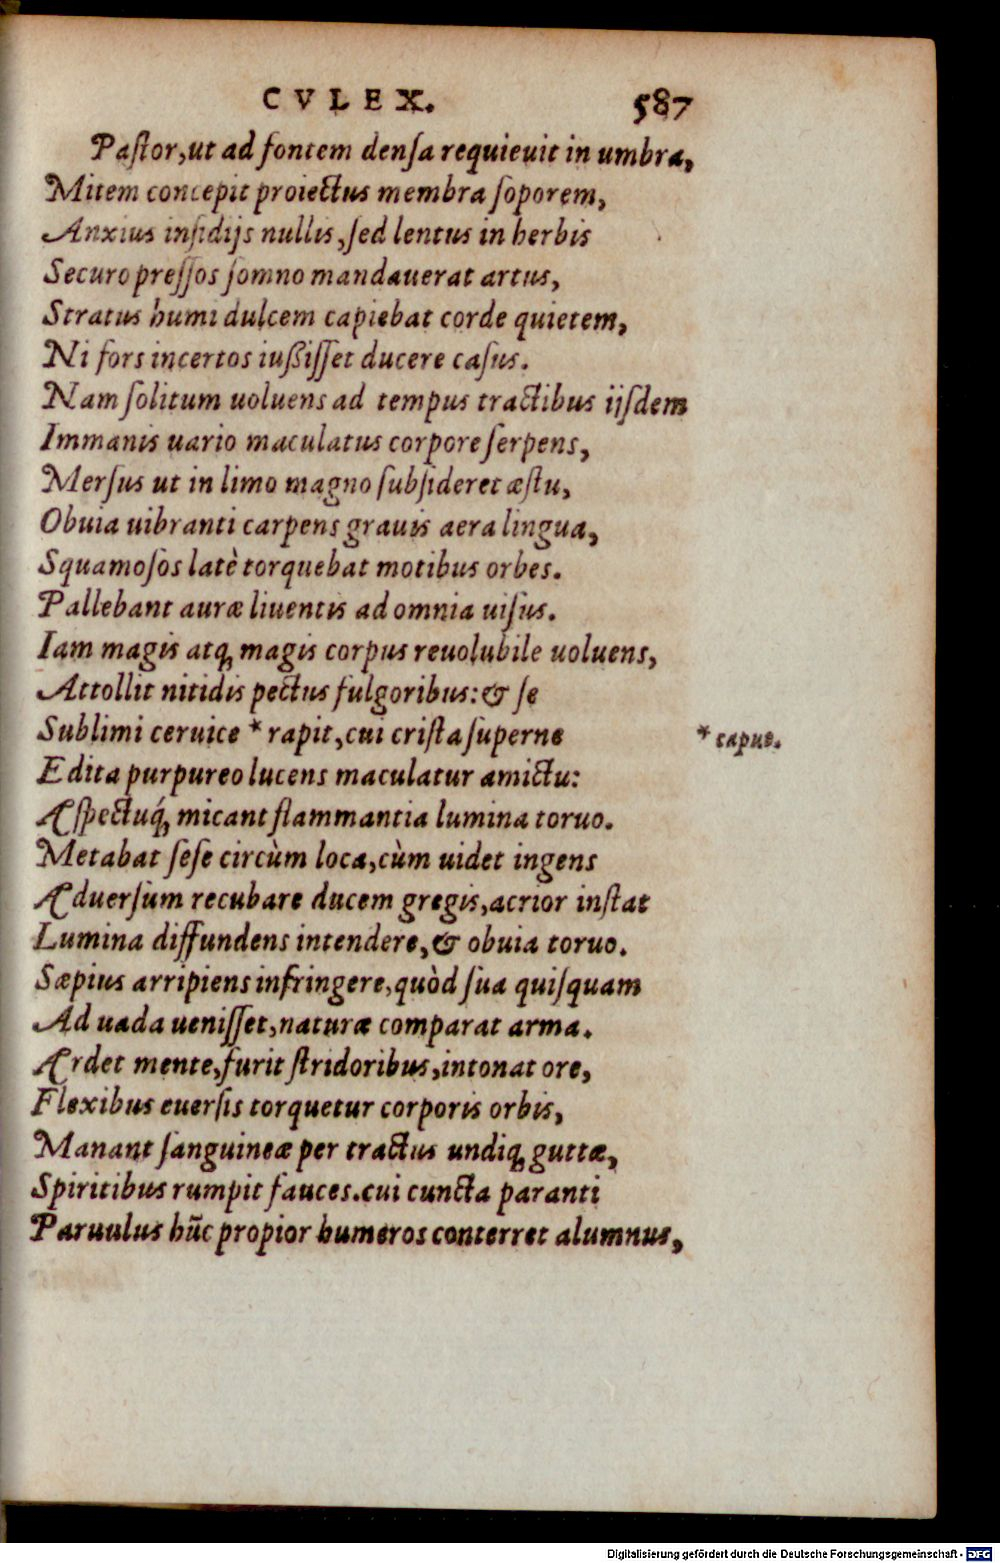 CVLEX. 587
Paſtor,ut ad fontem denſa requieuit in umbra,
Mitem concepit proiectus membra ſoporem,
Anxius inſidijs nullis,ſed lentus in herbis
Securo preſſos ſomno mandauerat artus,
Stratus humi dulcem capiebat corde quietem,
Ni fors incertos iußiſſet ducere caſus.
Nam ſolitum uoluens ad tempus tractibus ijſdem
Immanis uario maculatus corpore ſerpens,
Merſus ut in limo magno ſubſideret æſtu,
Obuia uibranti carpens grauis aera lingua,
Squamoſos latè torquebat motibus orbes.
Pallebant auræ liuentis ad omnia uiſus.
Iam magis atq; magis corpus reuolubile uoluens,
Attollit nitidis pectus fulgoribus:& ſe
Sublimi ceruice * rapit,cui criſta ſuperne
* caput.
Edita purpureo lucens maculatur amictu:
Aſpectuq́; micant flammantia lumina toruo.
Metabat ſeſe circùm loca,cùm uidet ingens
Aduerſum recubare ducem gregis,acrior inſtat
Lumina diffundens intendere,& obuia toruo.
Sæpius arripiens infringere,quòd ſua quiſquam
Ad uada ueniſſet,naturæ comparat arma.
Ardet mente,furit ſtridoribus,intonat ore,
Flexibus euerſis torquetur corporis orbis,
Manant ſanguineæ per tractus undiq; guttæ,
Spiritibus rumpit fauces.cui cuncta paranti
Paruulus hũc propior humeros conterret alumnus,
Digitalisierung gefördert durch die Deutsche Forschungsgemeinschaft - DFG